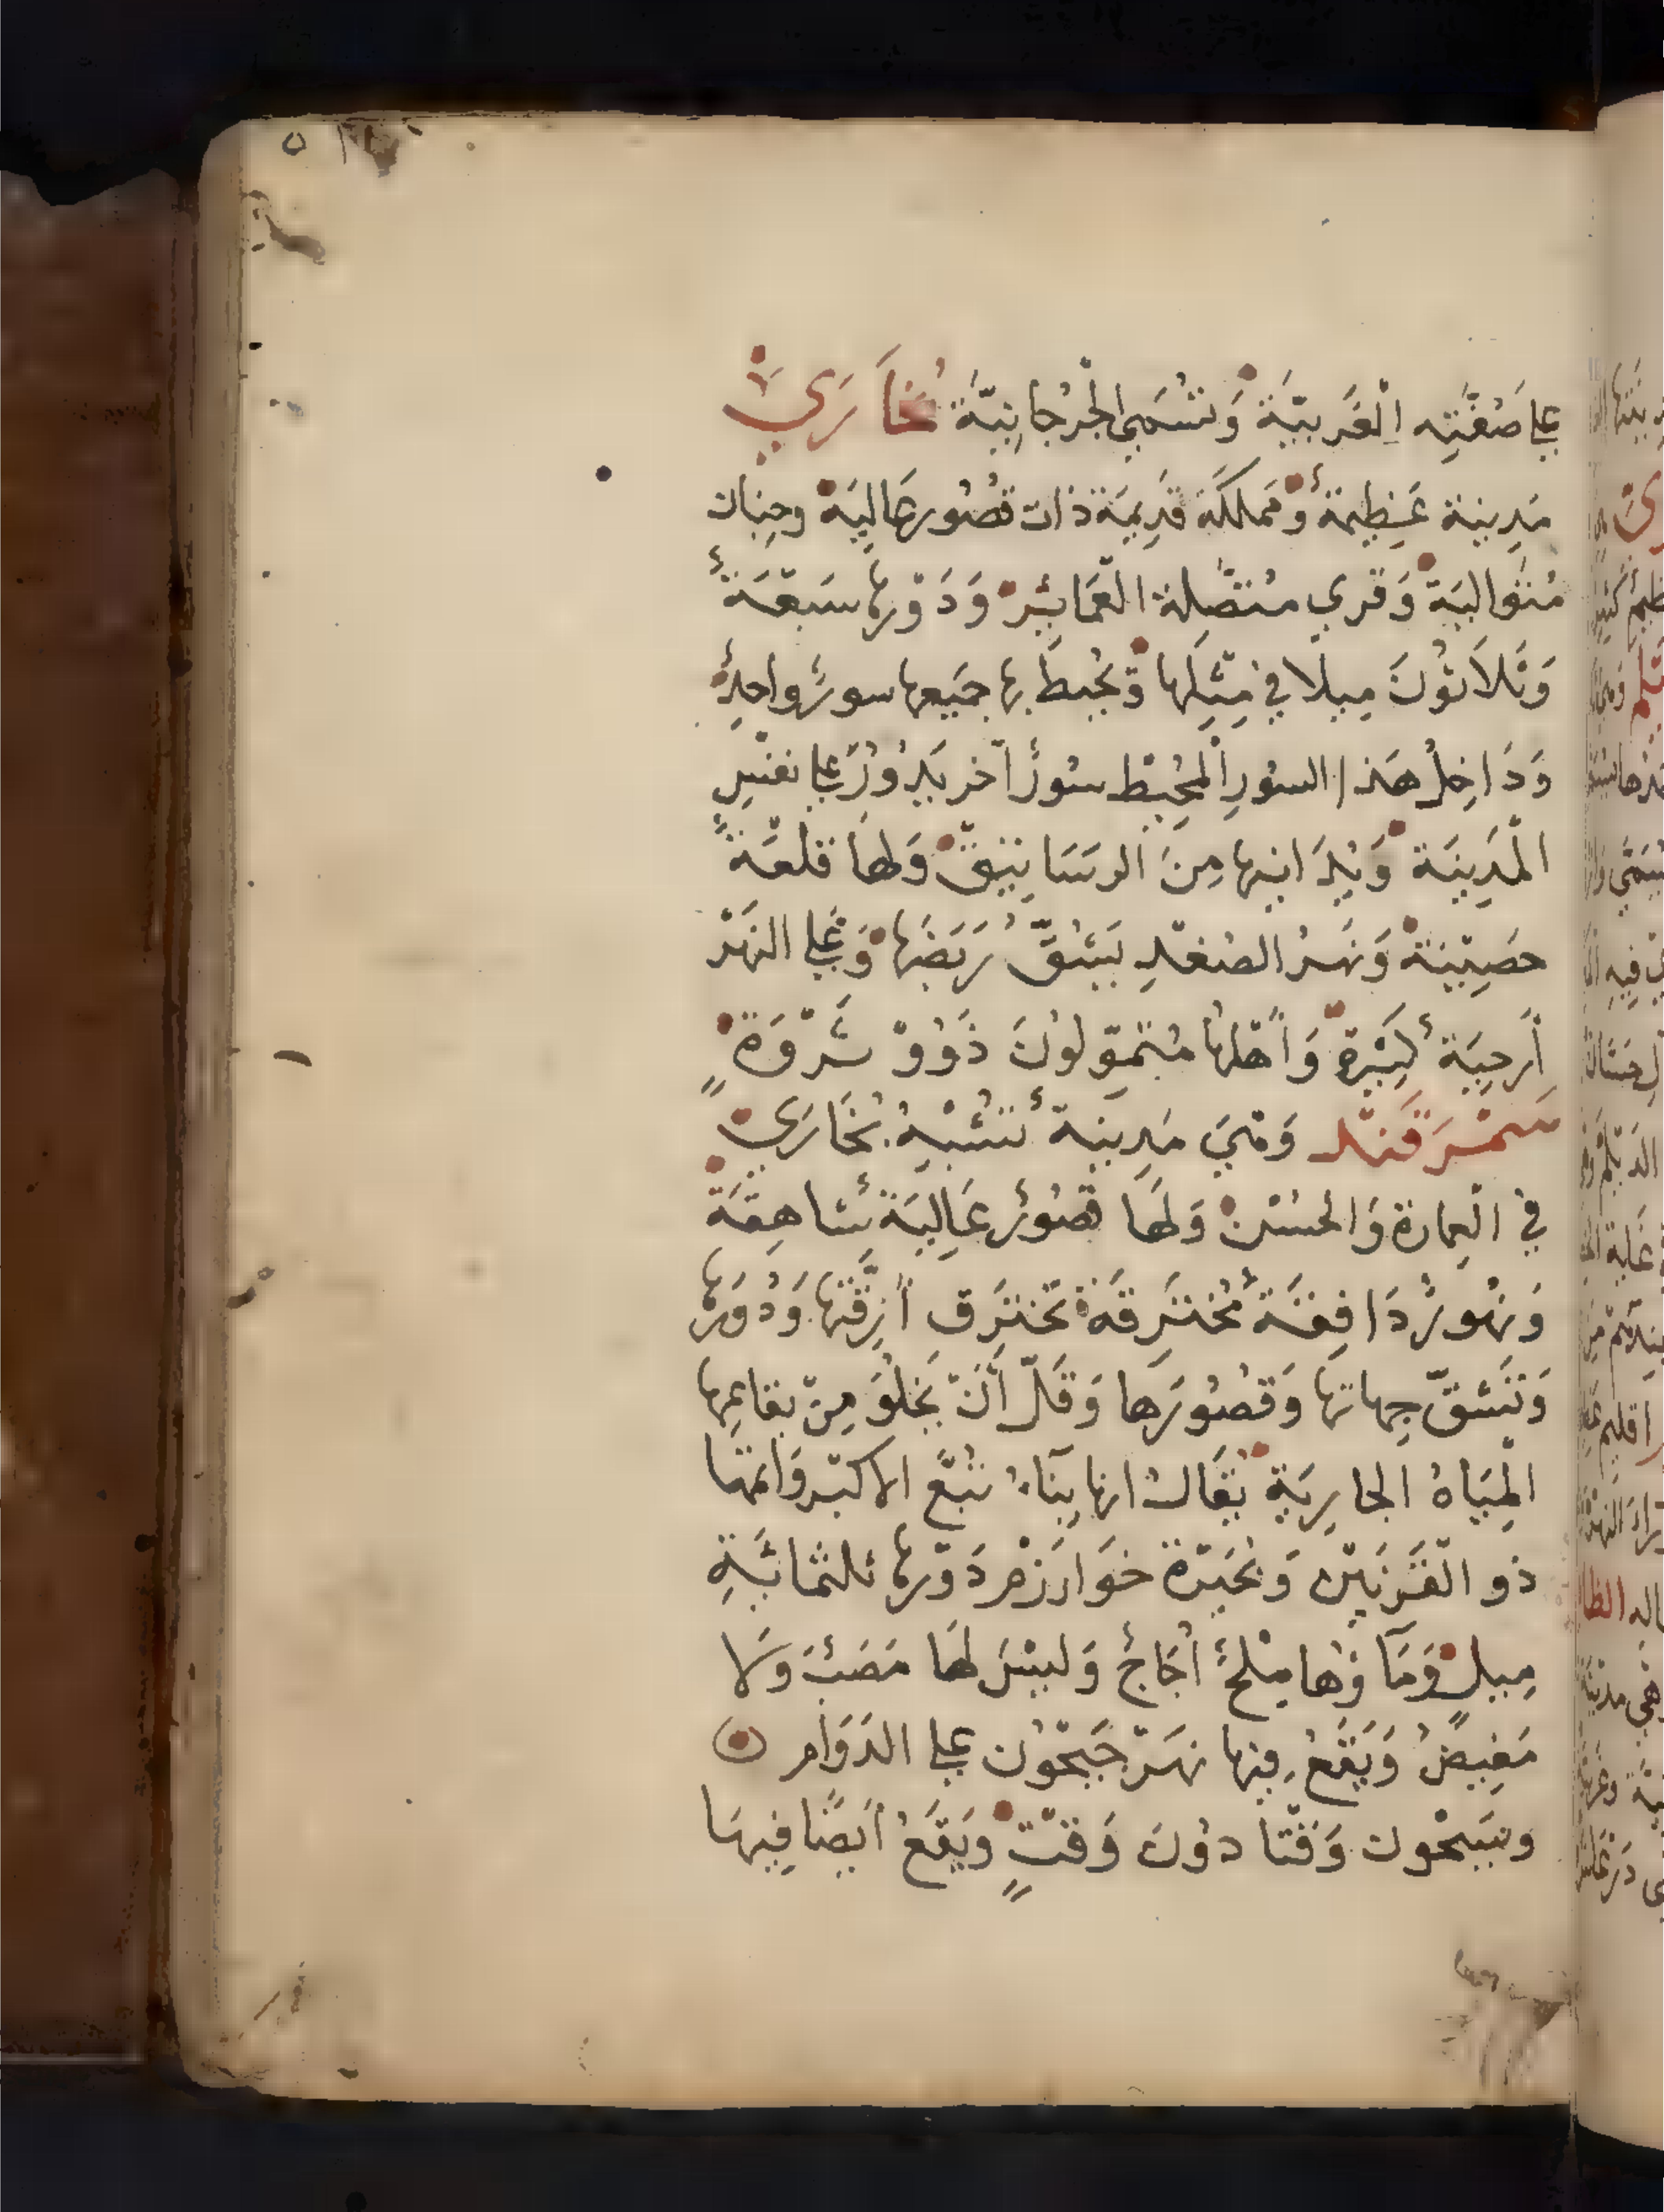 على ضفته الغربية وتسمى الجرجانية بخارى
مدينة عظيمة ومملكة قديمة ذات قصور عالية وجنات
متوالية وقرى متصلة العماير ودورها سبعة
وثلاثون ميلا في مثلها ويحيط بها جميعها سور واحد
وداخل هذا السور المحيط سور آخر يدور على نفس
المدينة وبلدانها من الرساتيق ولها قلعة
حصينة ونهر الصغد يشق ربضها وعلى النهر
أرحية كثيرة وأهلها متمولون ذوو ثروة
سمرقند وهي مدينة تشبه بخارى
في العمارة والحسن ولها قصور عالية شاهقة
ونهور دافقة مخترقة تخترق أزقتها ودورها
وتشق جهاتها وقصورها وقل أن يخلو من بقاعها
المياه الجارية يقال انها بناء تبع الاكبر واتمها
ذو القرنين وبحيرة خوارزم دورها ثلثمائة
ميل وماؤها ملح أجاج وليس لها مصب ولا
مغيض ويقع فيها نهر جيحون على الدوام
وسيحون وقتا دون وقت ويقع أيضا فيها